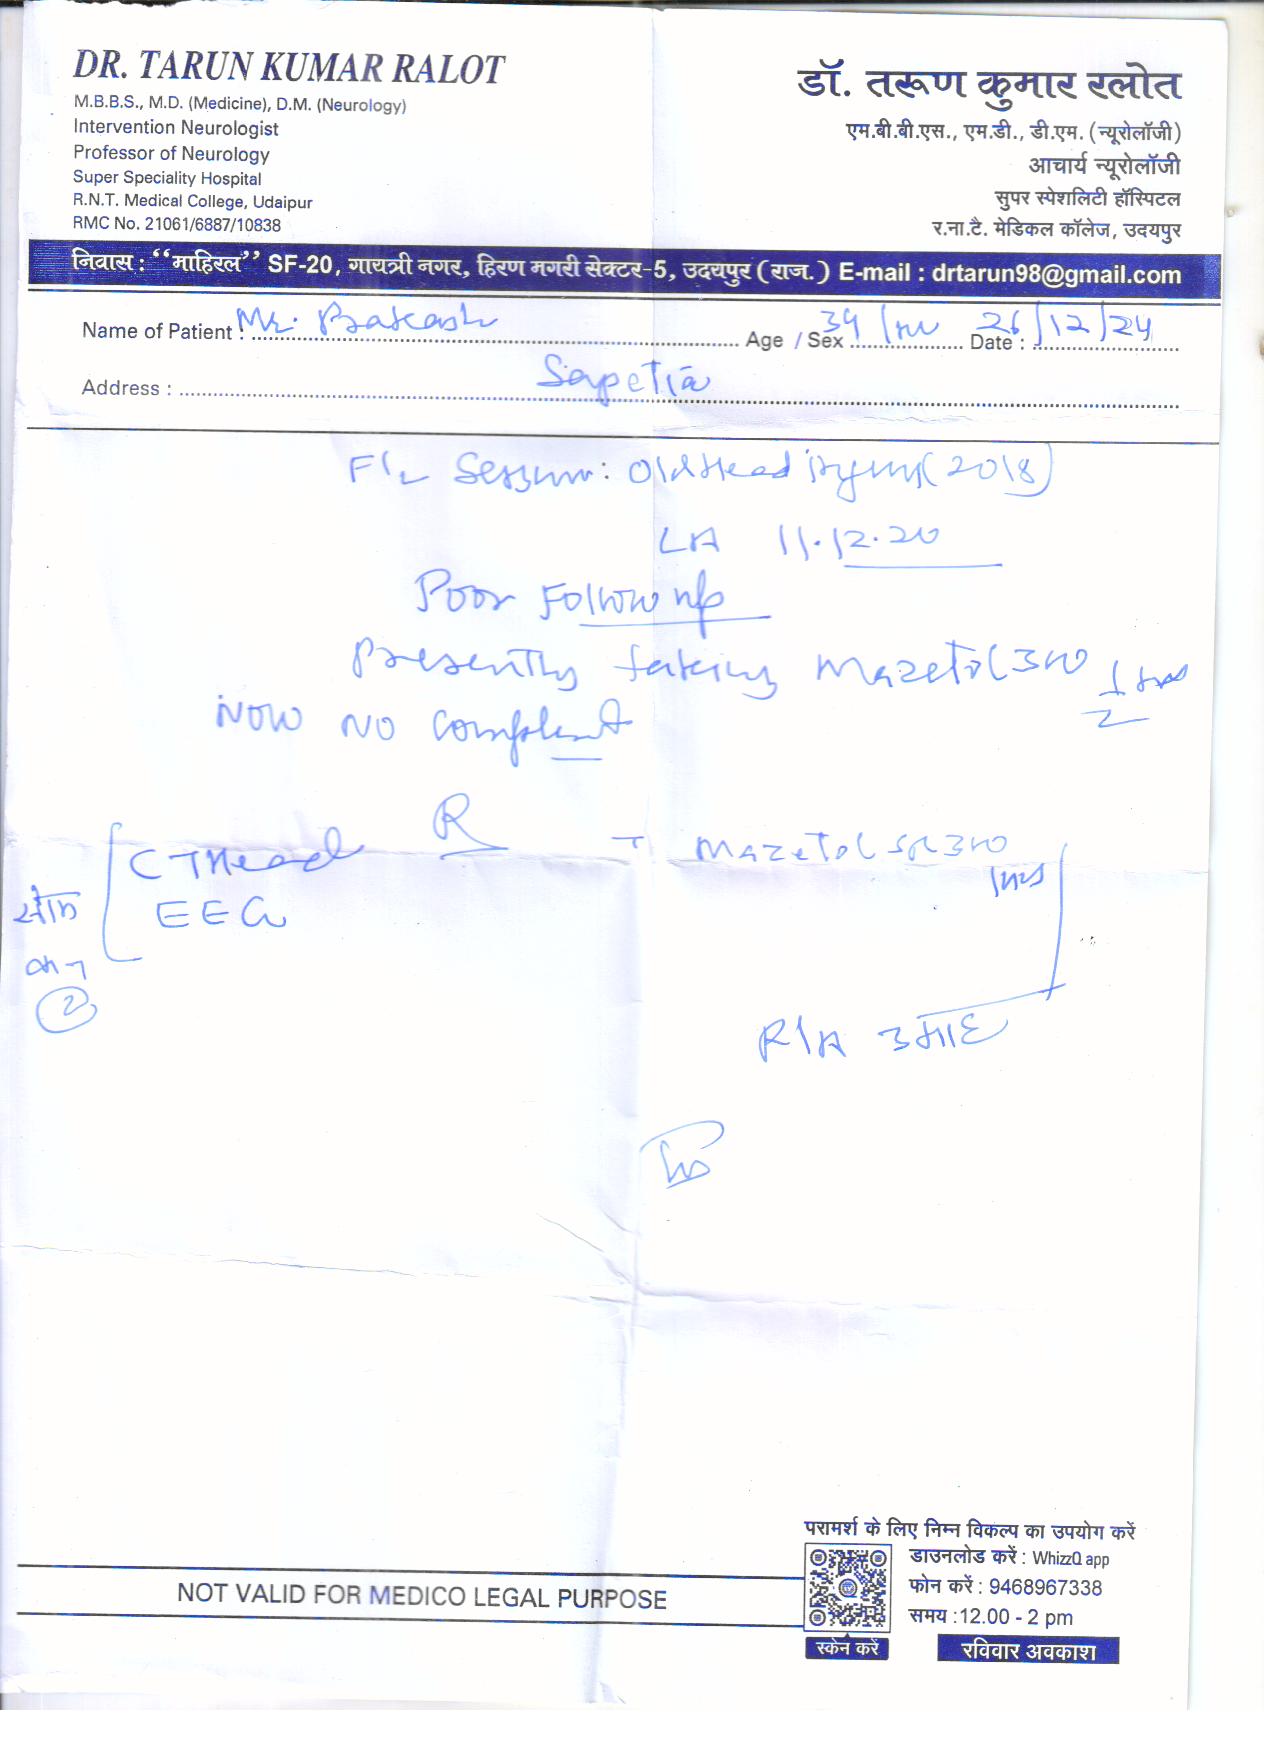 DR. TARUN KUMAR RALOT
M.B.B.S., M.D. (Medicine), D.M. (Neurology)
Intervention Neurologist
Professor of Neurology
Super Speciality Hospital
R.N.T. Medical College, Udaipur
RMC No. 21061/6887/10838
डॉ. तरूण कुमार रलोत
एम.बी.बी.एस., एम.डी., डी.एम. (न्यूरोलॉजी)
आचार्य न्यूरोलॉजी
सुपर स्पेशलिटी हॉस्पिटल
र.ना.टै. मेडिकल कॉलेज, उदयपुर
निवास : ‘‘माहिरल’’ SF-20, गायत्री नगर, हिरण मगरी सेक्टर-5, उदयपुर (राज.) E-mail : drtarun98@gmail.com
Name of Patient : Mr. Prakash Age / Sex 39 / m Date : 26/12/24
Address : Sapetia
Old Head (2018)
LA 11.12.20
Poor Follow up
Presently taking Mazetol 300 1/2
NOW NO complent
R
CT Head
T Mazetol SR 300
EEG
2
R/A 3 माह
परामर्श के लिए निम्न विकल्प का उपयोग करें
डाउनलोड करें : WhizzQ app
फोन करें : 9468967338
समय :12.00 - 2 pm
स्केन करें
रविवार अवकाश
NOT VALID FOR MEDICO LEGAL PURPOSE